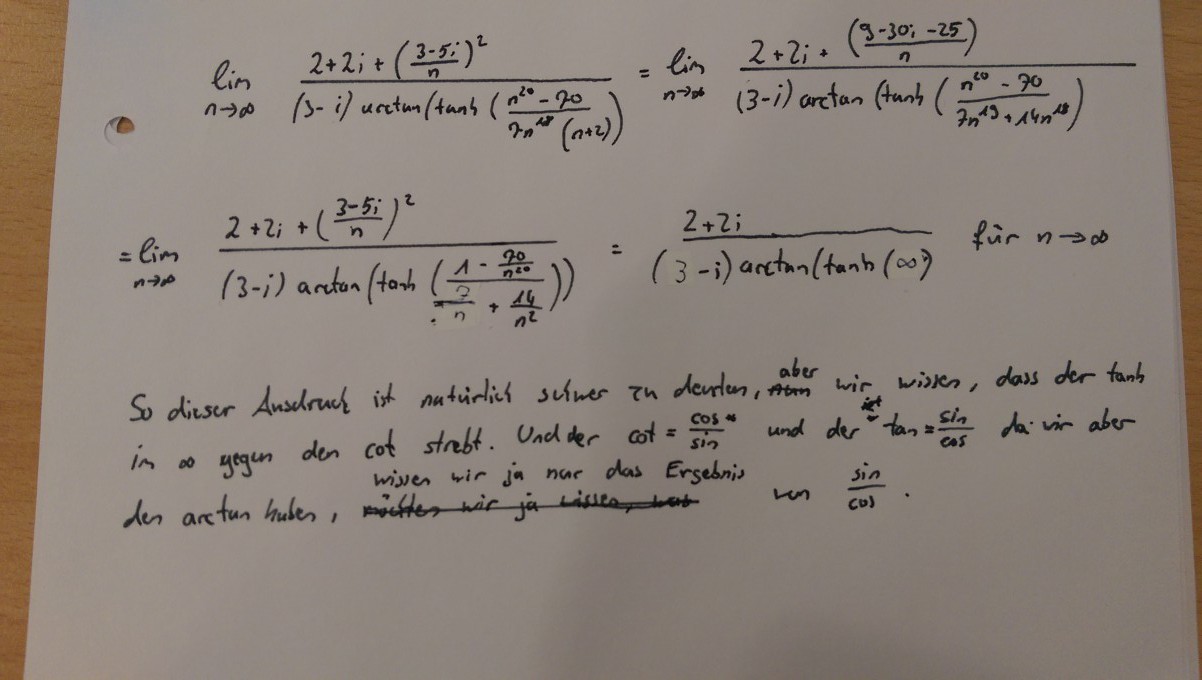 lim n→∞ (2+2i + ((3-5i)/n)²) / ((3-i) arctan(tanh((n²⁰ - 70)/(7n¹⁸(n+2)))) = lim n→∞ (2+2i + ((9-30i-25)/n)) / ((3-i) arctan(tanh((n²⁰ - 70)/(7n¹⁹+14n¹⁸))
= lim n→∞ (2+2i + ((3-5i)/n)²) / ((3-i) arctan(tanh((1 - 70/n²⁰)/(7/n + 14/n²)))) = (2+2i) / ((3-i) arctan(tanh(∞)) für n→∞
So dieser Ausdruck ist natürlich schwer zu deuten, aber wir wissen, dass der tanh
in ∞ gegen den cot strebt. Und der cot = cos/sin und der tan = sin/cos da wir aber
den arctan haben, wissen wir ja nur das Ergebnis von sin/cos.